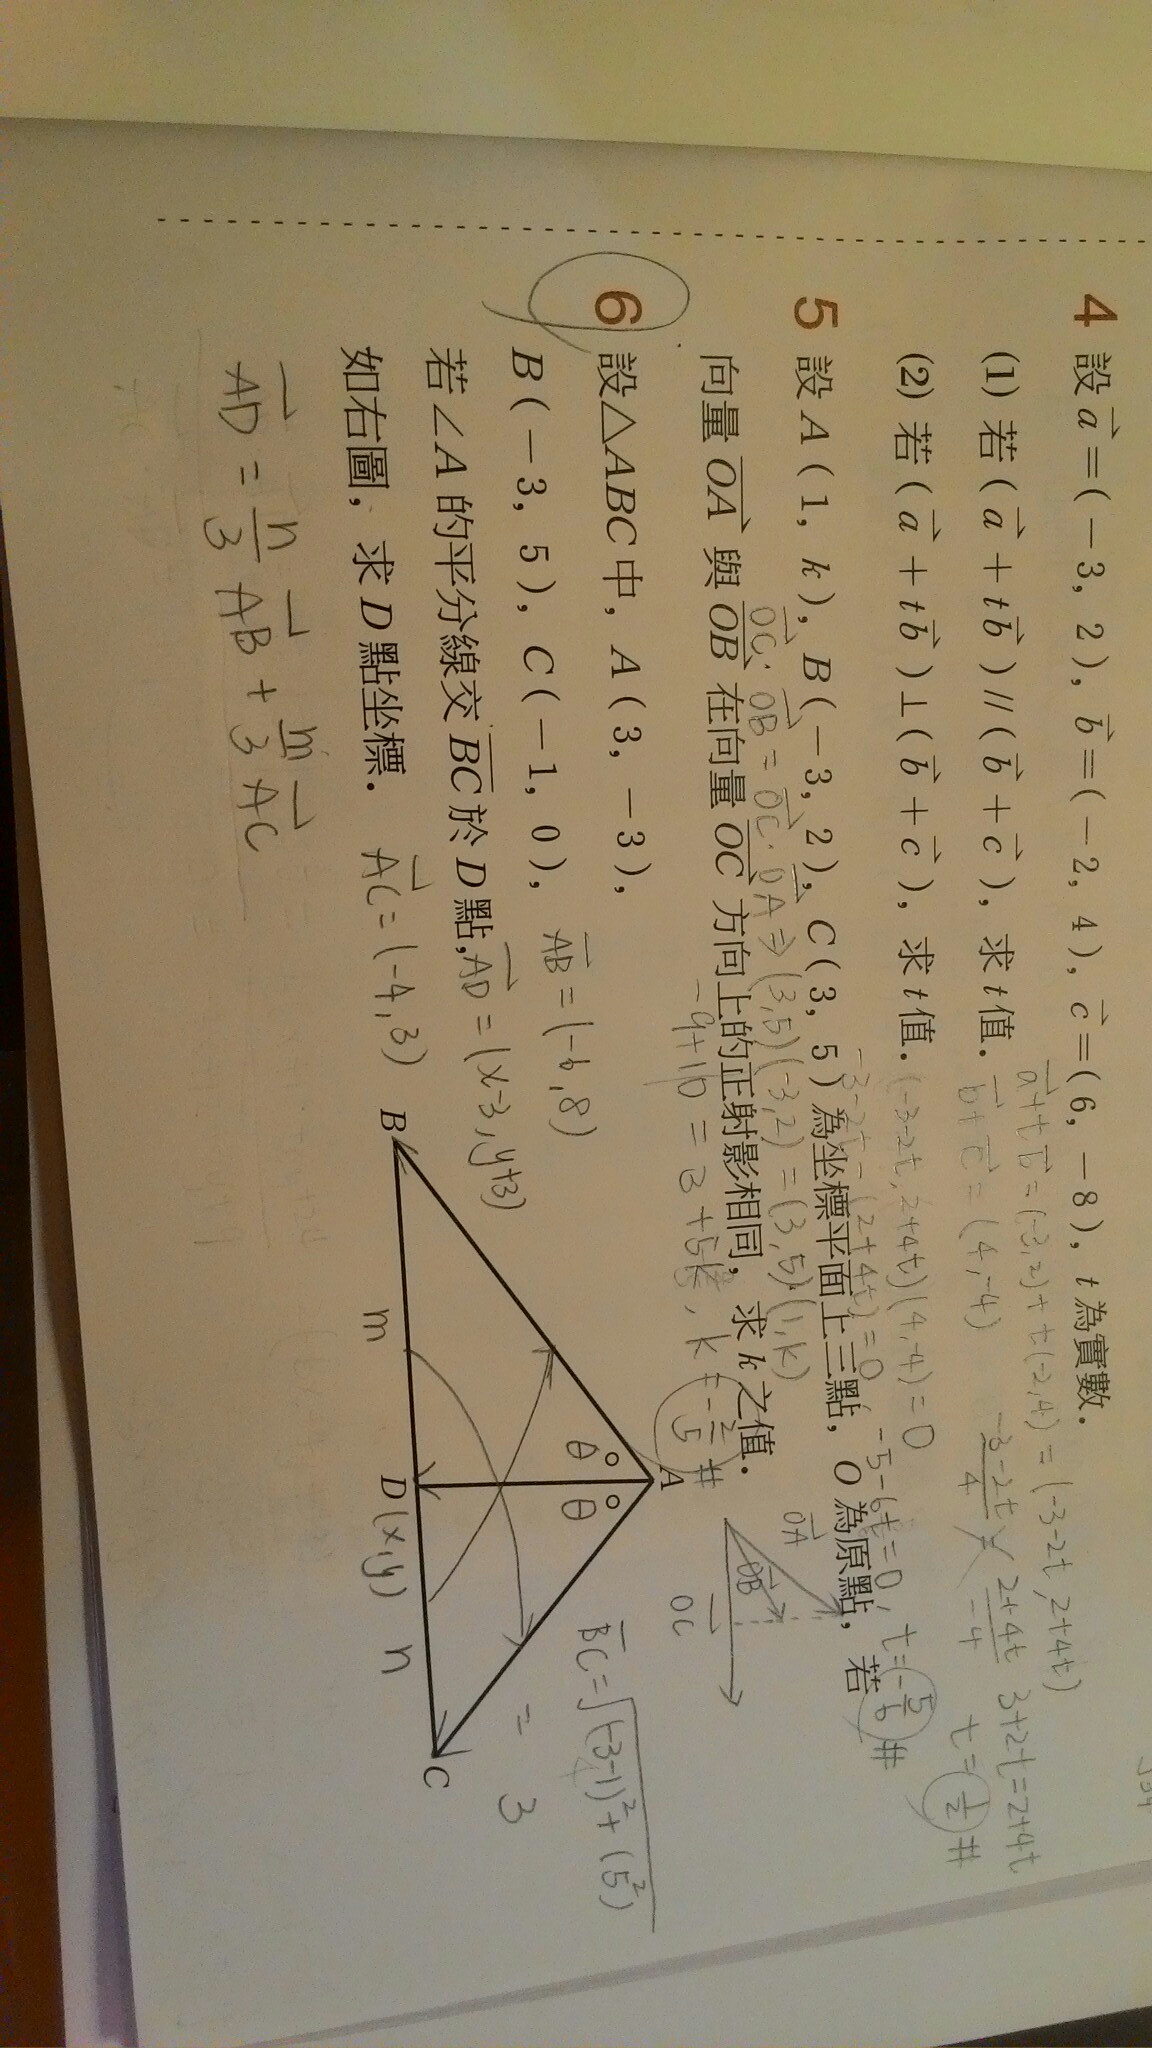 4 設 a⃗=(-3, 2), b⃗=(-2, 4), c⃗=(6, -8), t 為實數.
(1) 若(a⃗+tb⃗)//(b⃗+c⃗), 求 t 值.
a⃗+tb⃗=(-3,2)+t(-2,4)=(-3-2t, 2+4t)
b⃗+c⃗=(4,-4)
-3-2t/4 2+4t/-4
3+2t=2+4t
t=1/2 #
(2) 若(a⃗+tb⃗)⊥(b⃗+c⃗), 求 t 值.
(-3-2t, 2+4t)(4,-4)=0
-3-2t-(2+4t)=0
-5-6t=0, t=-5/6 #
5 設 A(1, k), B(-3, 2), C(3, 5)為坐標平面上三點, O 為原點, 若
向量 OA⃗ 與 OB⃗ 在向量 OC⃗ 方向上的正射影相同, 求 k 之值.
OC⃗·OB⃗=OC⃗·OA⃗⇒(3,5)(-3,2)=(3,5)·(1,k)
-9+10=3+5k, k=-2/5 #
OA⃗
OB⃗
OC⃗
6 設△ABC中, A(3, -3),
B(-3, 5), C(-1, 0),
若∠A 的平分線交 BC 於 D 點,
如右圖, 求 D 點坐標.
AB⃗=(-6,8)
AD⃗=(x-3,y+3)
AC⃗=(-4,3)
AD⃗=n/3 AB⃗+m/3 AC⃗
BC=√(-3-1)²+(5²)
=3
A
θ θ
B m D(x,y) n C